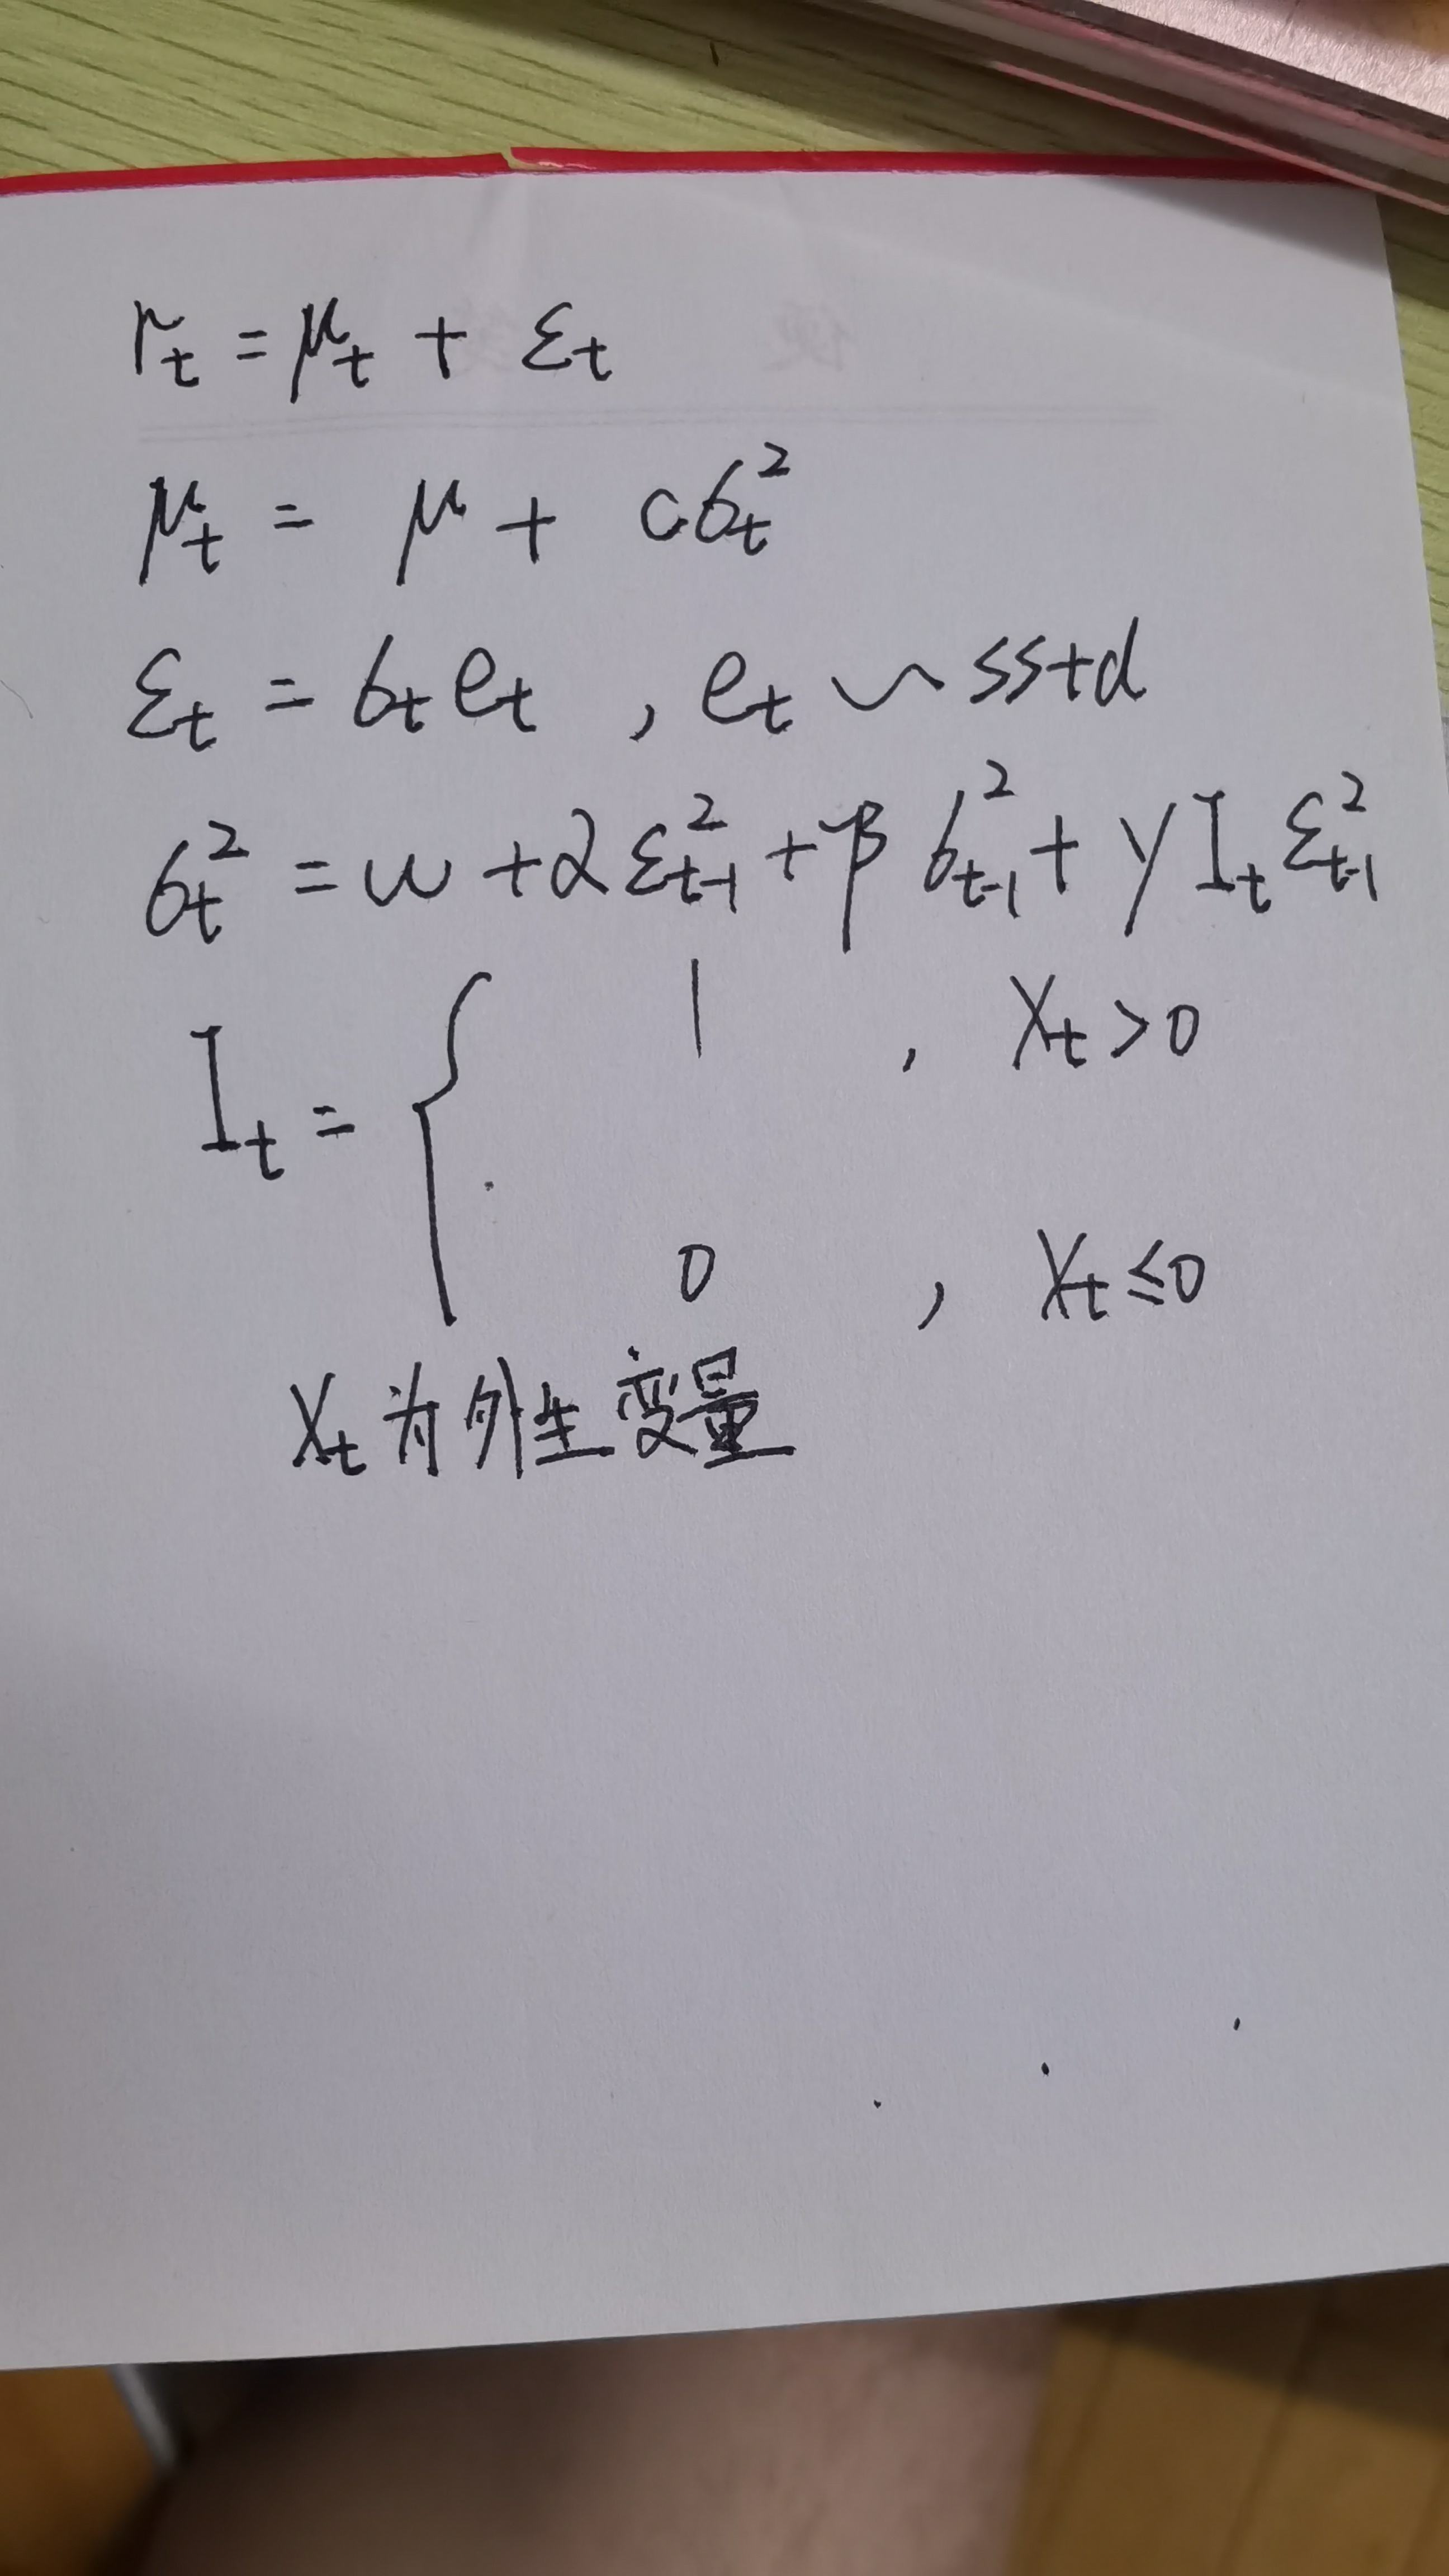 r_t = μ_t + ε_t
μ_t = μ + cσ_t^2
ε_t = σ_t e_t , e_t ~ sstd
σ_t^2 = ω + αε_{t-1}^2 + βσ_{t-1}^2 + γI_tε_{t-1}^2
I_t = { 1 , X_t > 0
0 , X_t ≤ 0
X_t为外生变量